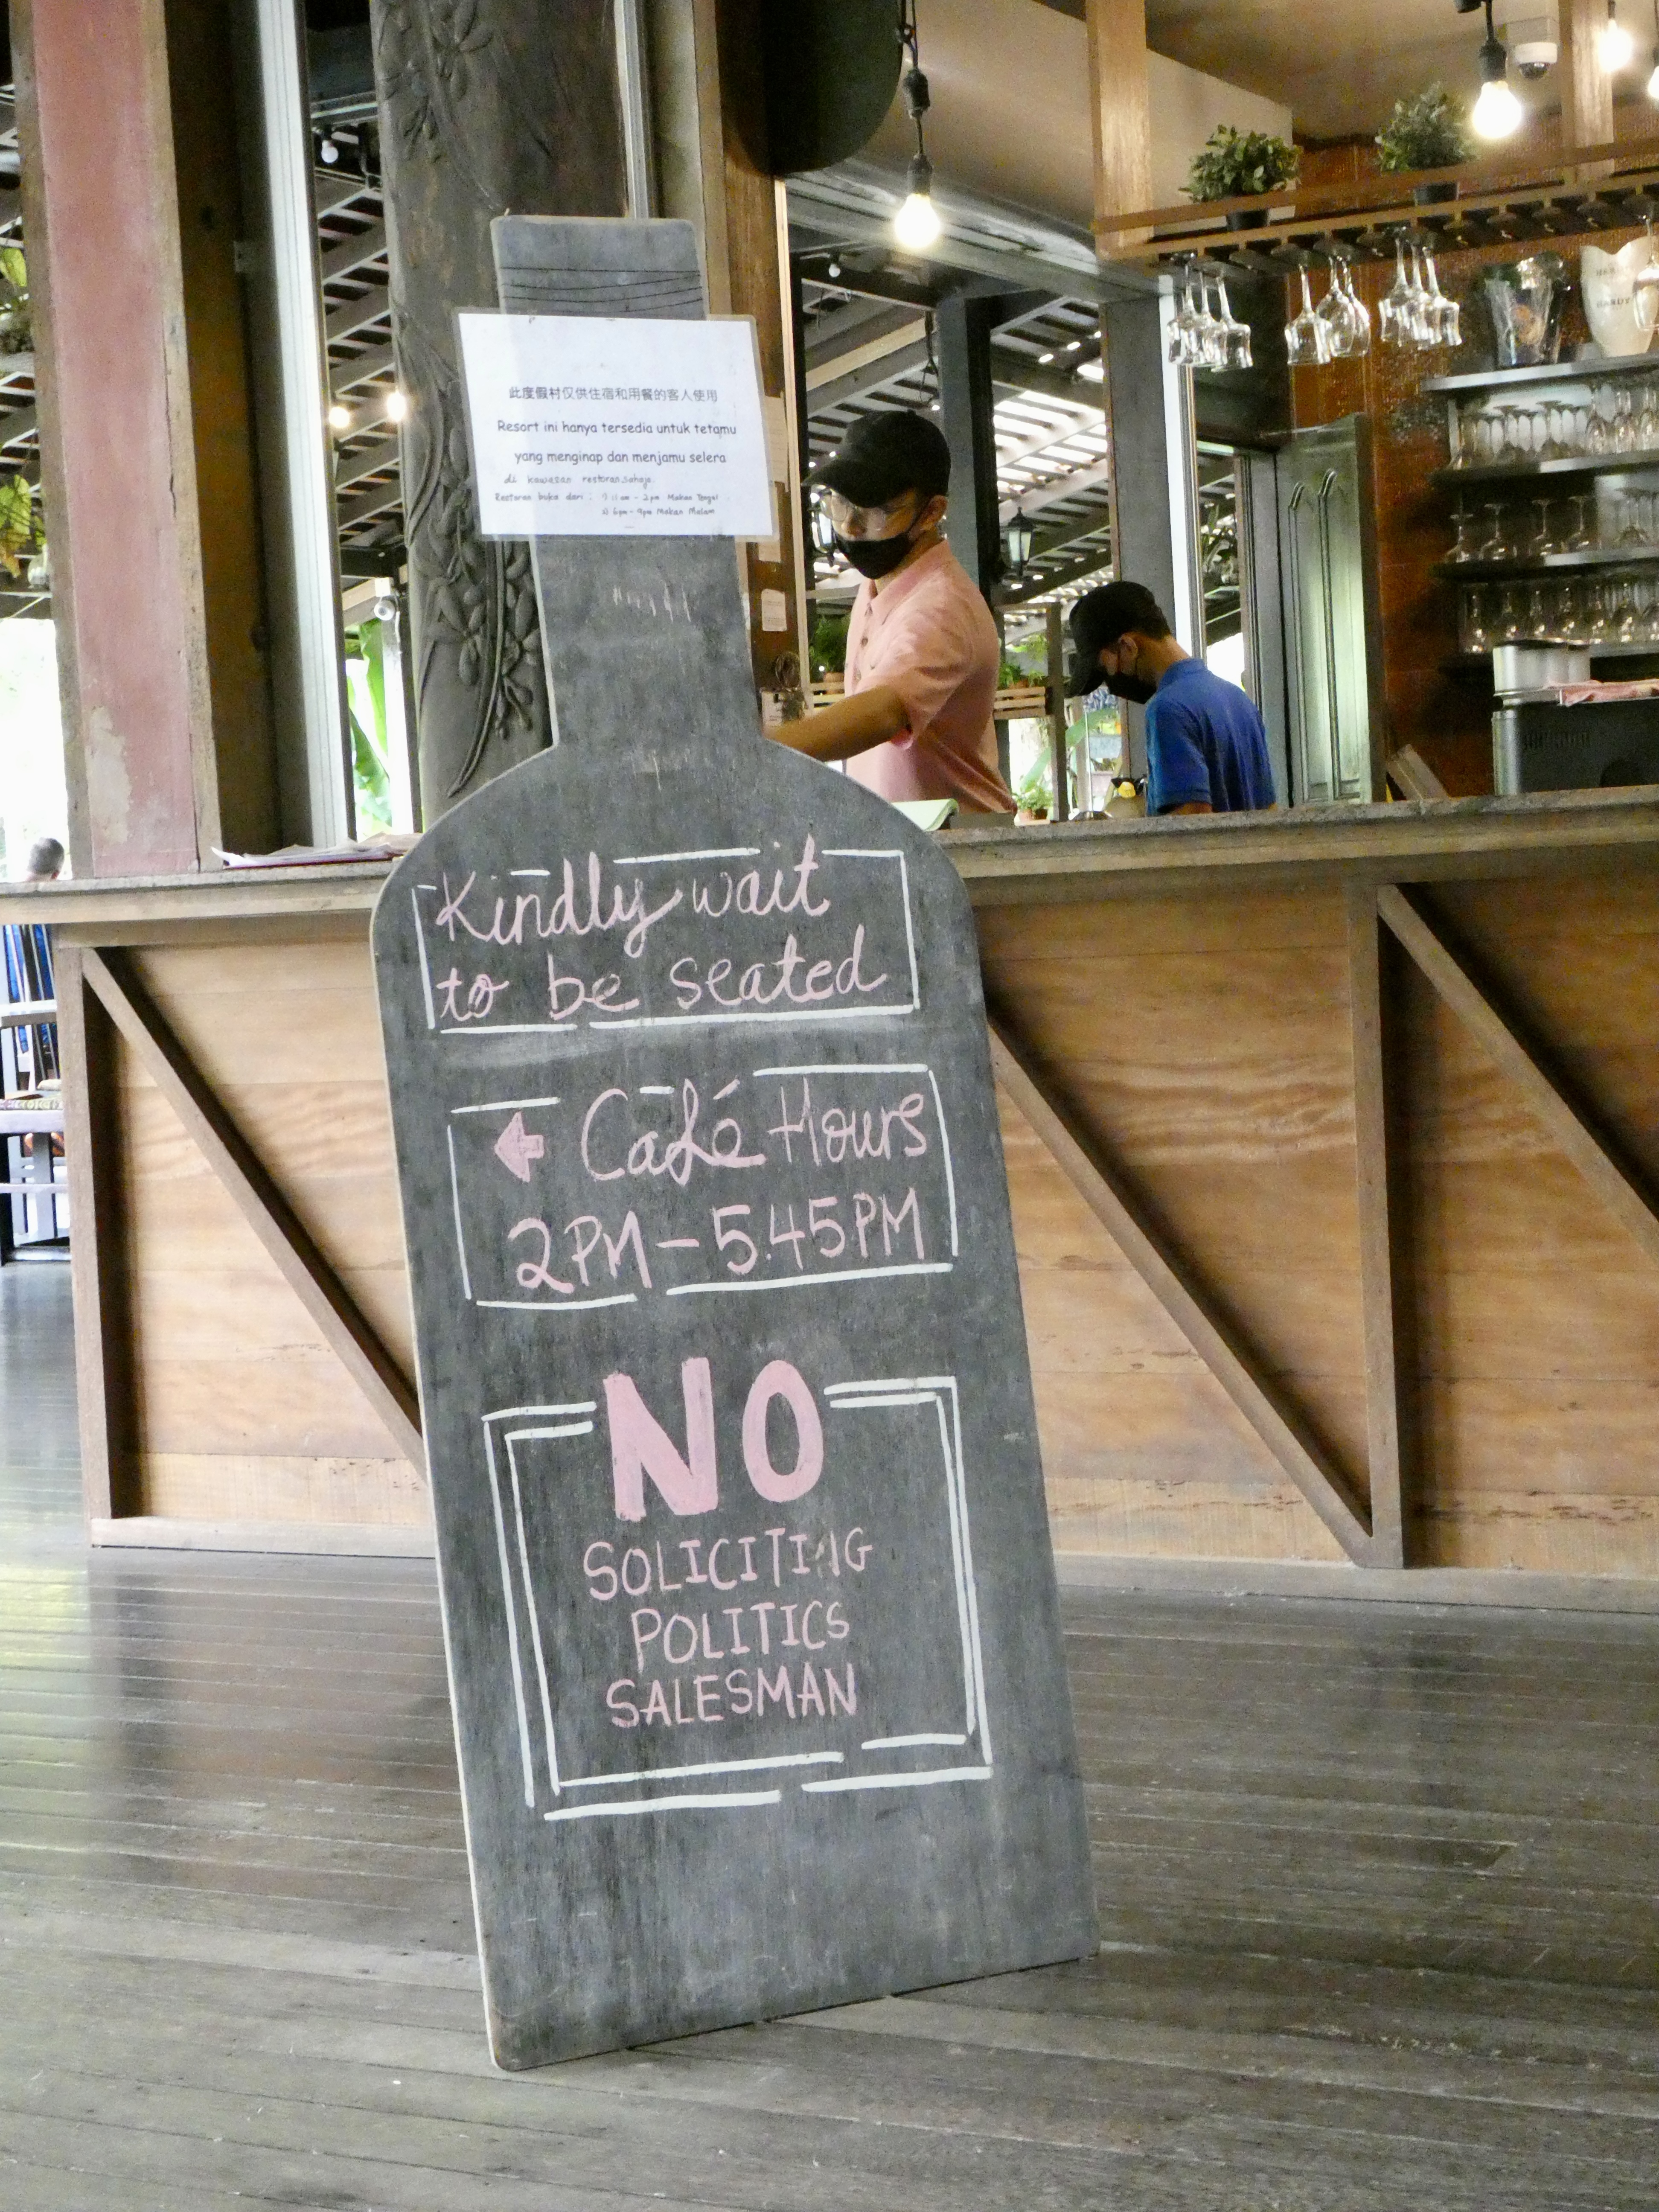 此度假村仅供住宿和用餐的客人使用
Resort ini hanya tersedia untuk tetamu
yang menginap dan menjamu selera
di kawasan restoran sahaja.
Restoran buka dari : i) 11 am - 2 pm Makan Tengah
ii) 6pm - 9pm Makan Malam
Kindly wait
to be seated
Café Hours
2PM - 5.45PM
NO
SOLICITING
POLITICS
SALESMAN